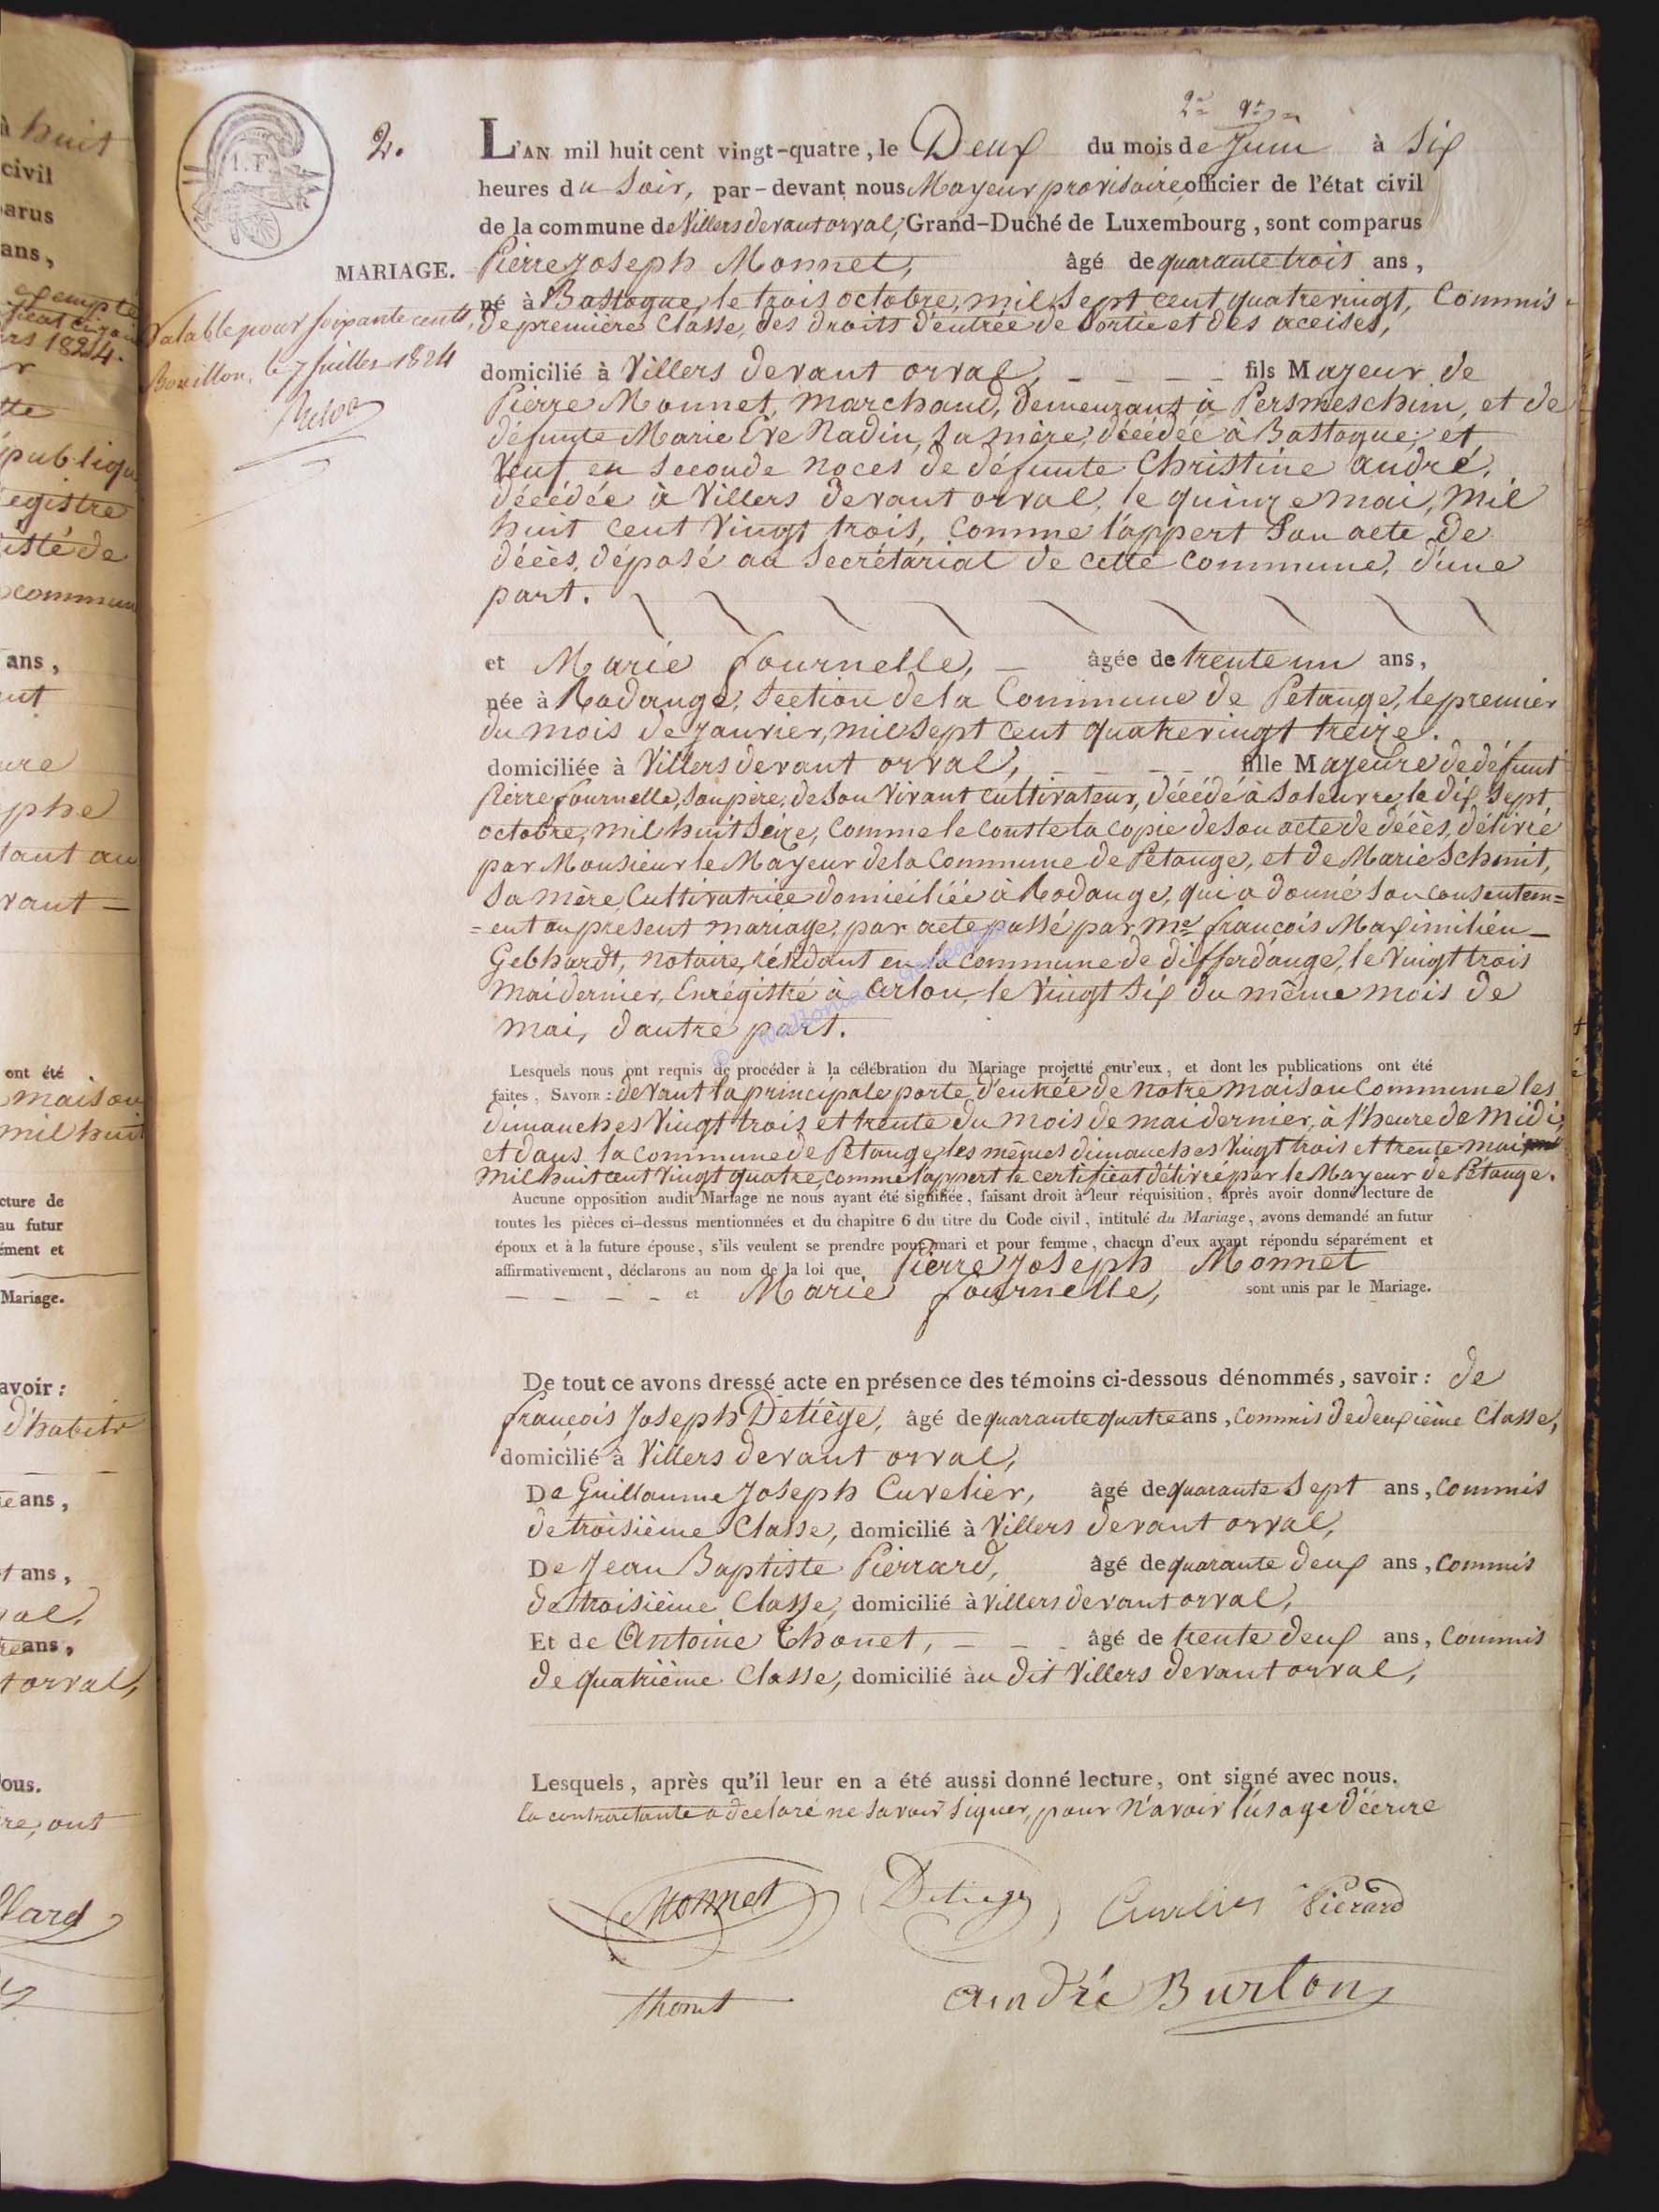 à huit
civil
parus
ans,
exempte
1824.
tte
publiqu
egistre
isté de
commun
ans,
ant
ure
phe
tant au
vant —
ont été
maison
mil huit
cture de
au futur
ément et
Mariage.
avoir :
d'habitr
ans,
t ans,
ans,
torval,
ous.
re, ont
lard
I.F.
2.
MARIAGE.
Valable pour soixante cents,
Bouillon, le 7 juillet 1824
L'AN mil huit cent vingt-quatre, le Deux du mois de Juin à Six
heures du Soir, par-devant nous Mayeur provisoire, officier de l'état civil
de la commune de Villers devant orval, Grand-Duché de Luxembourg, sont comparus
Pierre Joseph Monnet, âgé de quarante trois ans,
né à Bastogne, le trois octobre, mil Sept cent quatrevingt, Commis
de première Classe, des droits d'entrée de Sortie et des acceises,
domicilié à Villers devant orval, — — — — fils Majeur de
Pierre Monnet, marchand, demeurant à Persmeschim, et de
défunte Marie Eve Nadin, sa mère, décédée à Bastogne; et
Veuf en seconde noces de défunte Christine andré,
décédée à Villers devant orval, le quinze mai, mil
huit cent Vingt trois, comme l'appert Son acte de
décès, déposé au Secrétariat de cette commune, d'une
part.
et Marie fournelle, — âgée de trente un ans,
née à Rodange, Section de la Commune de Petange, le premier
du mois de Janvier, mil sept cent quatrevingt treize.
domiciliée à Villers devant orval, — — — — fille Majeure de défunt
Pierre fournelle, son père, de Son Vivant cultivateur, décédé à Soleuvre, le dix Sept
octobre, mil huit Seize, comme le conste la copie de Son acte de décès, délivré
par Monsieur le Mayeur de la Commune de Petange, et de Marie Schmit,
Sa mère, Cultivatrice domiciliée à Rodange, qui a donné Son Consentem=
=ent au présent mariage, par acte passé par Me François Maximilién —
Gebhardt, notaire, résidant en la commune de differdange, le Vingt trois
mai dernier, Enrégistré à Arlon, le Vingt Six du même mois de
mai, d'autre part.
Lesquels nous ont requis de procéder à la célébration du Mariage projetté entr'eux, et dont les publications ont été
faites, SAVOIR : devant la principale porte d'entrée de notre maison Commune les
dimanches Vingt trois et trente du mois de mai dernier, à l'heure de Midi,
et dans la commune de Petange, les mêmes dimanches Vingt trois et trente mai
mil huit cent Vingt quatre, comme l'appert le certificat délivré par le Mayeur de Petange.
Aucune opposition audit Mariage ne nous ayant été signifiée, faisant droit à leur réquisition, après avoir donné lecture de
toutes les pièces ci-dessus mentionnées et du chapitre 6 du titre du Code civil, intitulé du Mariage, avons demandé au futur
époux et à la future épouse, s'ils veulent se prendre pour mari et pour femme, chacun d'eux ayant répondu séparément et
affirmativement, déclarons au nom de la loi que Pierre Joseph Monnet
— — — — et Marie fournelle, sont unis par le Mariage.
De tout ce avons dressé acte en présence des témoins ci-dessous dénommés, savoir : de
françois Joseph Detiège, âgé de quarante quatre ans, commis de deuxième Classe,
domicilié à Villers devant orval,
De Guillaume Joseph Cuvelier, âgé de quarante Sept ans, Commis
de troisième Classe, domicilié à Villers devant orval,
De Jean Baptiste Pierrard, âgé de quarante deux ans, Commis
de troisième Classe, domicilié à villers devant orval,
Et de Antoine Thonet, — — — âgé de trente deux ans, Commis
de quatrième Classe, domicilié àu dit Villers devant orval,
Lesquels, après qu'il leur en a été aussi donné lecture, ont signé avec nous.
la contractante a déclaré ne Savoir signer, pour n'avoir l'usage d'écrire
Monnet Detiege Cuvelier Piérard
Thonet andré Burton